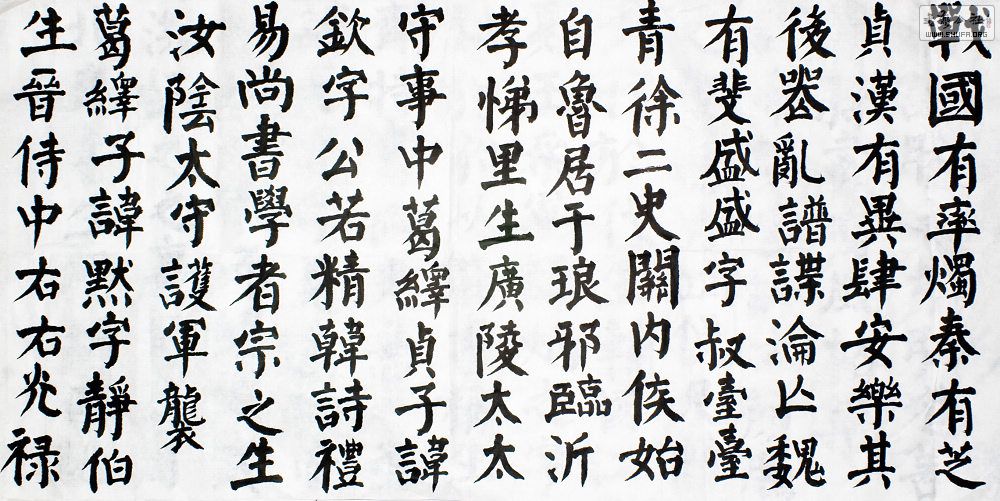 戰國有率燭秦有芝
貞漢有異肆安樂其
後喪亂譜諜淪亾魏
有斐盛盛字叔臺臺
青徐二史關内侯始
自魯居于琅邪臨沂
孝悌里生廣陵太太
守事中葛繹貞子諱
欽字公若精韓詩禮
易尚書學者宗之生
汝陰太守護軍襲
葛繹子諱默字靜伯
生晉侍中右右光禄
WWW.SHUFA.ORG